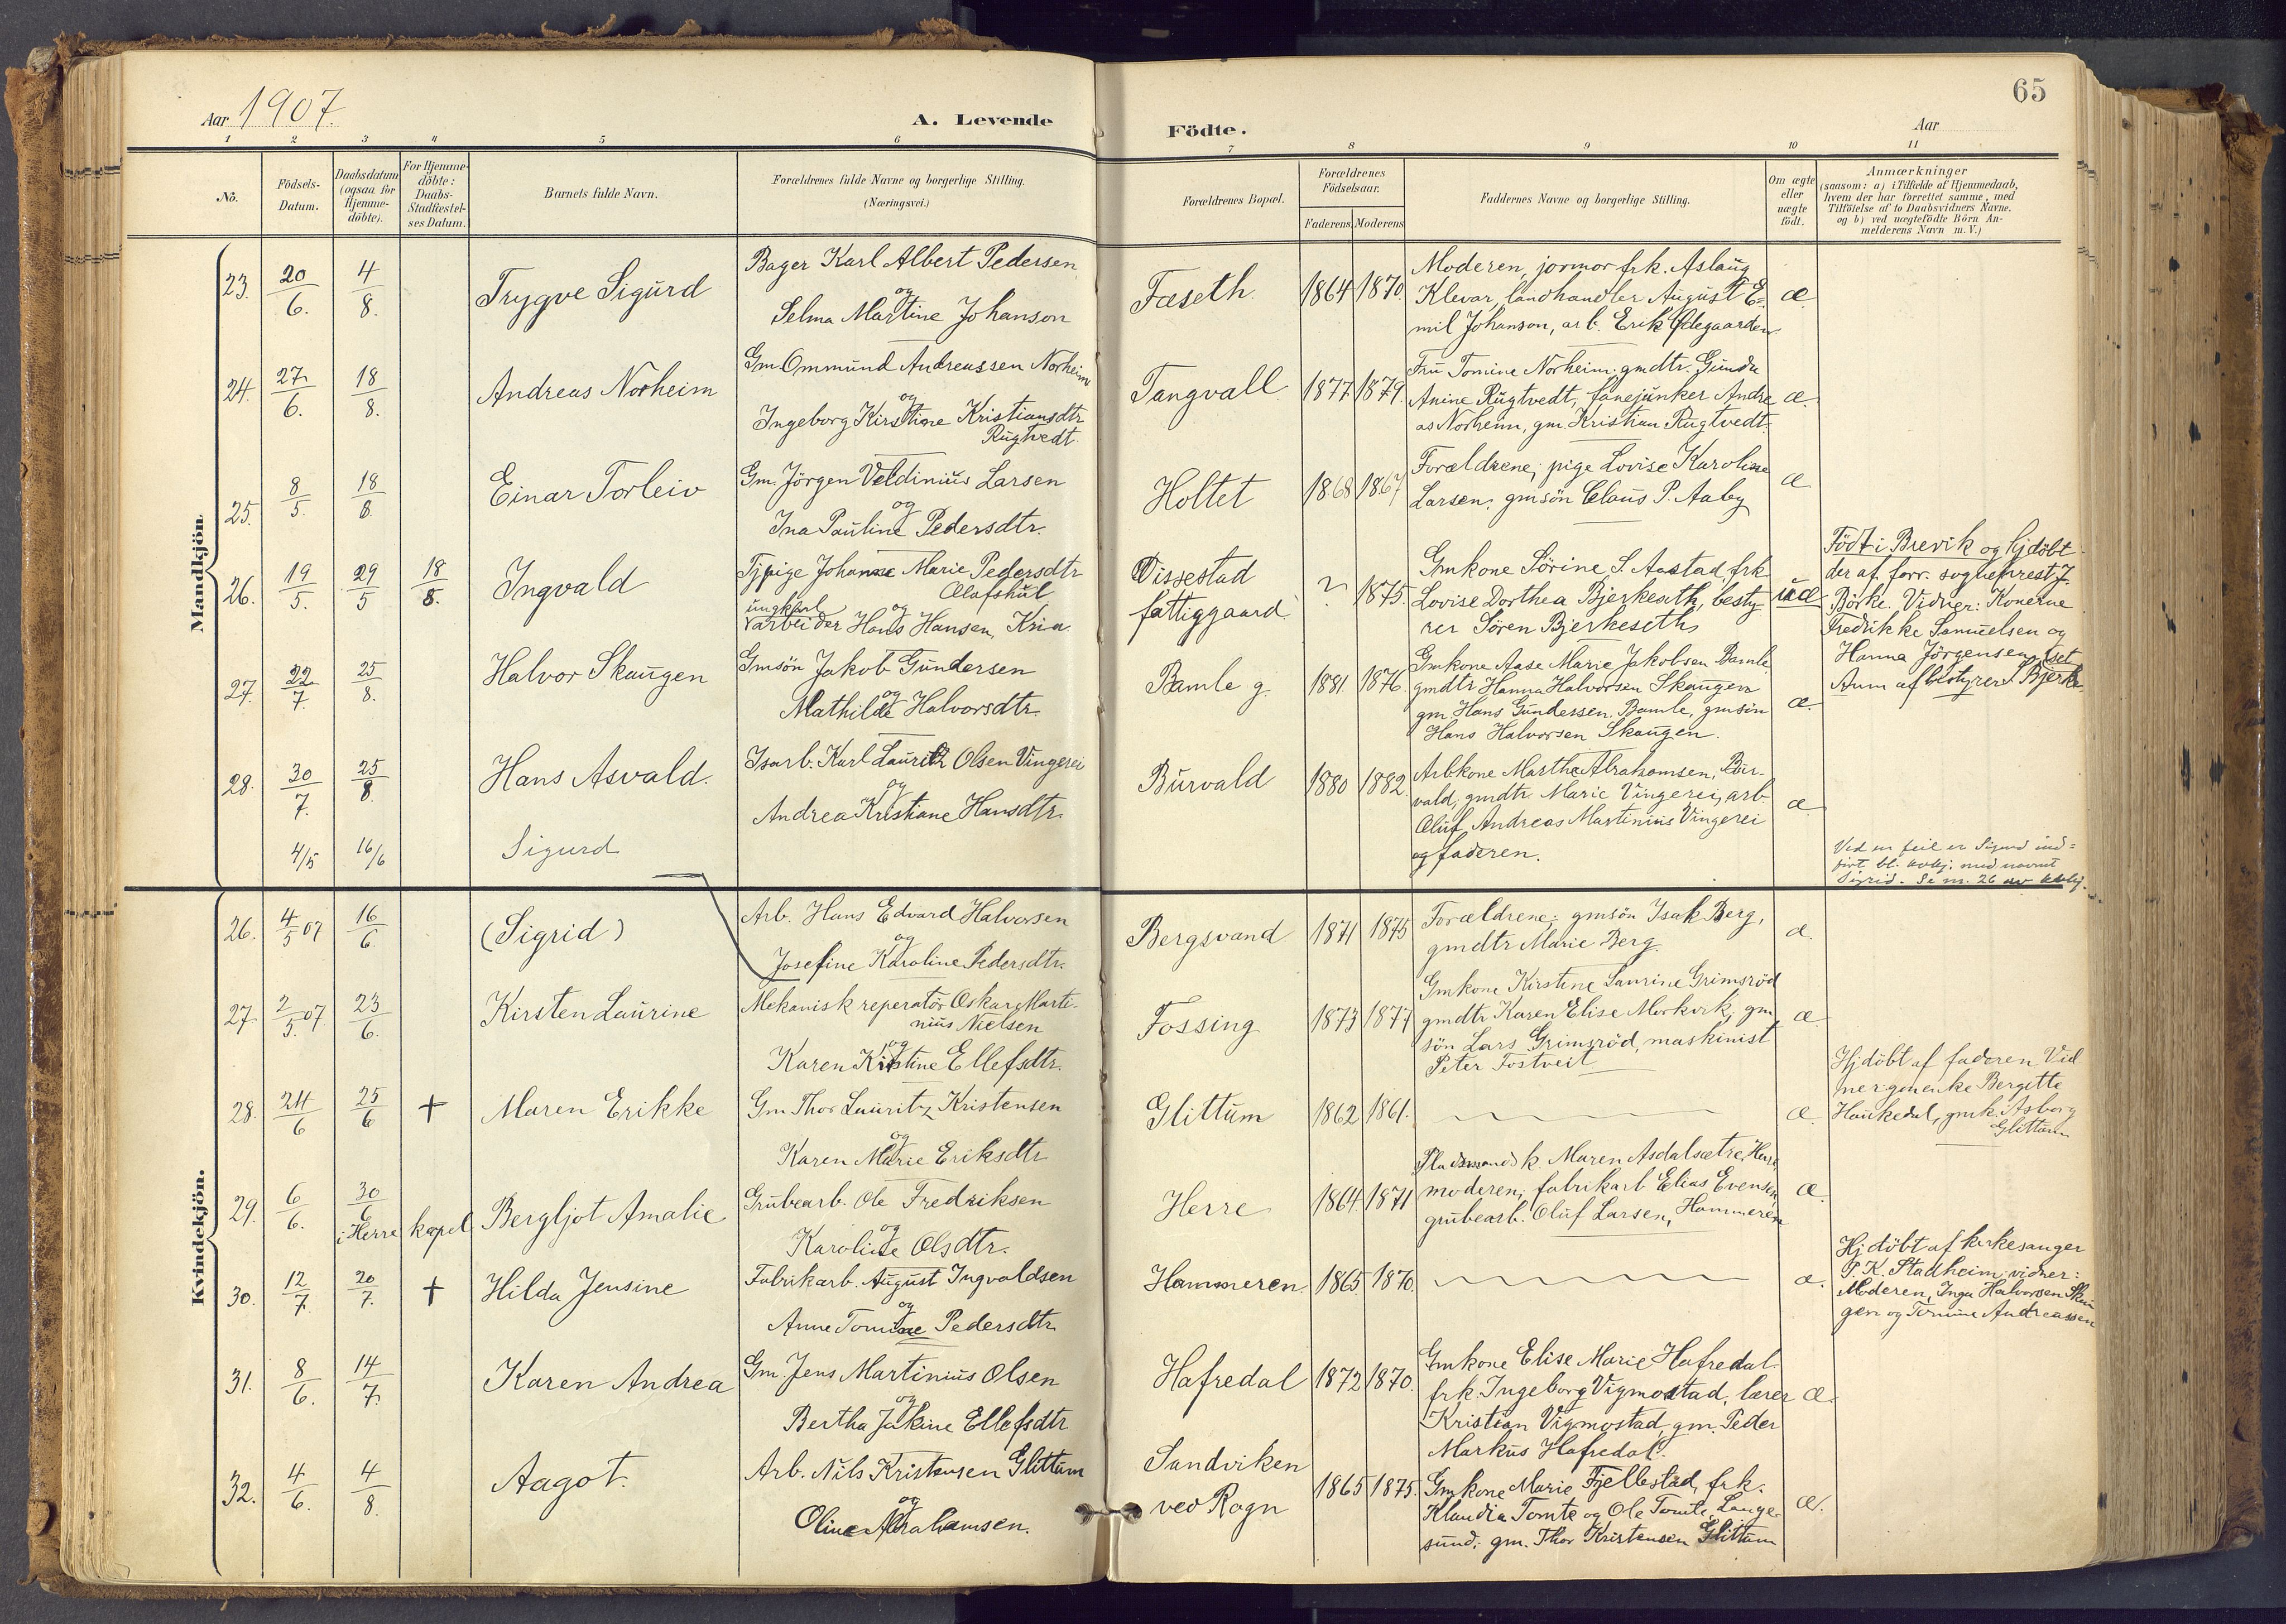 65
Aar 1907.
A. Levende
Födte.
Aar
1 2 3 4 5 6 7 8 9 10 11
No.
Födsels-
Datum.
Daabsdatum
(ogsaa for
Hjemme-
döbte).
For Hjemme-
döbte:
Daabs-
Stadfæstel-
ses Datum.
Barnets fulde Navn.
Forældrenes fulde Navne og borgerlige Stilling.
(Næringsvei.)
Forældrenes Bopæl.
Forældrenes
Födselsaar.
Faderens. Moderens
Faddernes Navne og borgerlige Stilling.
Om ægte
eller
uægte
födt.
Anmærkninger
(saasom: a) i Tilfælde af Hjemmedaab,
hvem der har forrettet samme, med
Tilföielse af to Daabsvidners Navne.
og b) ved uægtefödte Börn An-
melderens Navn m. V.)
Mandkjön.
23. 20/6. 4/8. Trygve Sigurd
Bager Karl Albert Pedersen
og
Selma Martine Johanson
Fæseth. 1864 1870.
Moderen, jormor frk. Aslaug
Klevar, landhandler August E-
mil Johanson, arb. Erik Ødegaarden
æ.
24. 27/6. 18/8. Andreas Norheim
Gm Ommund Andreassen Norheim
og
Ingeborg Kirstine Kristiansdtr
Rugtvedt.
Tangvall 1877. 1879.
Fru Tomine Norheim. gmdtr. Gunda
Anine Rugtvedt, fanejunker Andre
as Norheim, gm. Kristian Rugtvedt.
æ.
25. 8/5. 18/8. Einar Torleiv
Gm. Jörgen Veldinius Larsen
og
Ina Pauline Pedersdtr.
Holtet 1868 1867
Forældrene; pige Lovise Karoline
Larsen; gmsön Claus P. Aaby
æ
26. 19/5. 29/5 18/8. Ingvald
Tjpige Johanne Marie Pedersdtr
Olafshul
ungkarl og
arbeider Hans Hansen, Kria.
Vissestad
fattiggaard. ? 1875.
Gmkone Sörine S. Aastad, frk.
Lovise Dorthea Bjerkeseth, besty-
rer Sören Bjerkeseth
uæ
Födt i Brevik og hjdöbt
der af forr. sogneprest J.
Börke. Vidner: Konerne
Fredrikke Samuelsen og
Hanna Jörgensen.
Anm af bestyrer S. Bjerke-
set
27. 22/7. 25/8. Halvor Skaugen
Gmsön Jakob Gundersen
og
Mathilde Halvorsdtr.
Bamle g. 1881. 1876.
Gmkone Aase Marie Jakobsen Bamle
gmdtr Hanna Halvorsen Skaugen
gm Hans Gundersen Bamle, gmsön
Hans Halvorsen Skaugen.
æ.
28. 30/7. 25/8. Hans Asvald.
Isarb. Karl Lauritz Olsen Vingerei
og
Andrea Kristiane Hansdtr.
Burvald 1880 1882.
Arbkone Marthe Abrahamsen, Bur-
vald; gmdtr. Marie Vingerei, arb
Oluf Andreas Martinius Vingerei
og faderen.
æ
4/5 16/6 Sigurd
Ved en feil er Sigurd ind-
fört bl. kvkj. med navnet
Sigrid. Se nr. 26 av kvkj.
Kvindekjön.
26. 4/5 07 16/6. (Sigrid)
Arb. Hans Edvard Halvorsen
og
Josefine Karoline Pedersdtr.
Bergsvand 1871 1875
Forældrene; gmsön Isak Berg,
gmdtr Marie Berg.
æ.
27. 2/5. 07 23/6. Kirsten Laurine
Mekanisk reperatör Oskar Marti-
nius Nielsen
og
Karen Kirstine Ellefsdtr.
Fossing 1873 1877
Gmkone Kirstine Laurine Grimsröd
gmdtr Karen Elise Merkerk, gm
sön Lars Grimsröd, maskinist
Peter Fostveit
æ.
28. 24/6 25/6 † Maren Erikke
Gm Thor Lauritz Kristensen
og
Karen Marie Eriksdtr
Glittum 1862 1861.
æ.
Hjdöbt af faderen Vid
ner: gmenke Bergitte
Haukedal, gmk. Asborg
Glittum
29. 6/6. 30/6 i Herre kapel Bergljot Amalie
Grubearb. Ole Fredriksen
og
Karoline Olsdtr.
Herre 1864. 1871
Pladsmands k. Maren Asdalsætre, Herre
moderen; fabrikarb Elias Evensen
grubearb. Oluf Larsen, Hammeren
æ.
30. 12/7. 20/7. † Hilda Jensine
Fabrikarb. August Ingvaldsen
og
Anne Tomine Pedersdtr
Hammeren 1865 1870.
æ.
Hjdöbt af kirkesanger
P. K. Stadheim; vidner:
Moderen, Inga Halvorsen Skau
gen og Tomine Andreassen
31. 8/6. 14/7. Karen Andrea
Gm. Jens Martinius Olsen
og
Bertha Jakine Ellefsdtr
Hafredal 1872 1870.
Gmkone Elise Marie Hafredal.
frk. Ingeborg Vigmostad, lærer
Kristian Vigmostad, gm. Peder
Markus Hafredal.
æ.
32. 4/6. 4/8. Aagot.
Arb. Nils Kristensen Glittum
og
Oline Abrahamsen.
Sandviken
ved Rogn 1865 1875.
Gmkone Marie Fjellestad, frk.
Klaudia Tomte og Ole Tomte, Lange-
sund; gm. Thor Kristensen Glittum
æ.